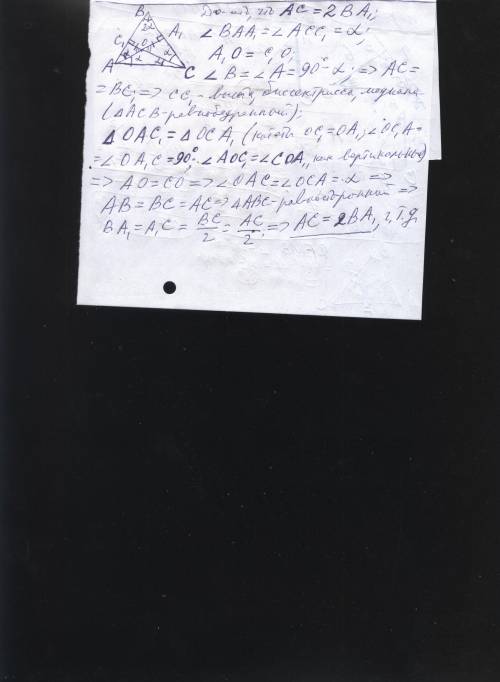 B
2α
C₁ O A₁
A α α C
Док-ть, что AC = 2BA₁;
∠BAA₁ = ∠ACC₁ = α;
A₁O = C₁O;
∠B = ∠A = 90° - α; => AC =
= BC; => CC₁ - высота, биссектриса, медиана
(△ACB - равнобедренный);
△OAC₁ = △OCA₁ (катеты OC₁ = OA₁; ∠OC₁A =
= ∠OA₁C = 90°; ∠AOC₁ = ∠COA₁, как вертикальные)
=> AO = CO => ∠OAC = ∠OCA = α =>
AB = BC = AC => △ABC - равносторонний =>
BA₁ = A₁C = BC/2 = AC/2; => AC = 2BA₁, ч.т.д.